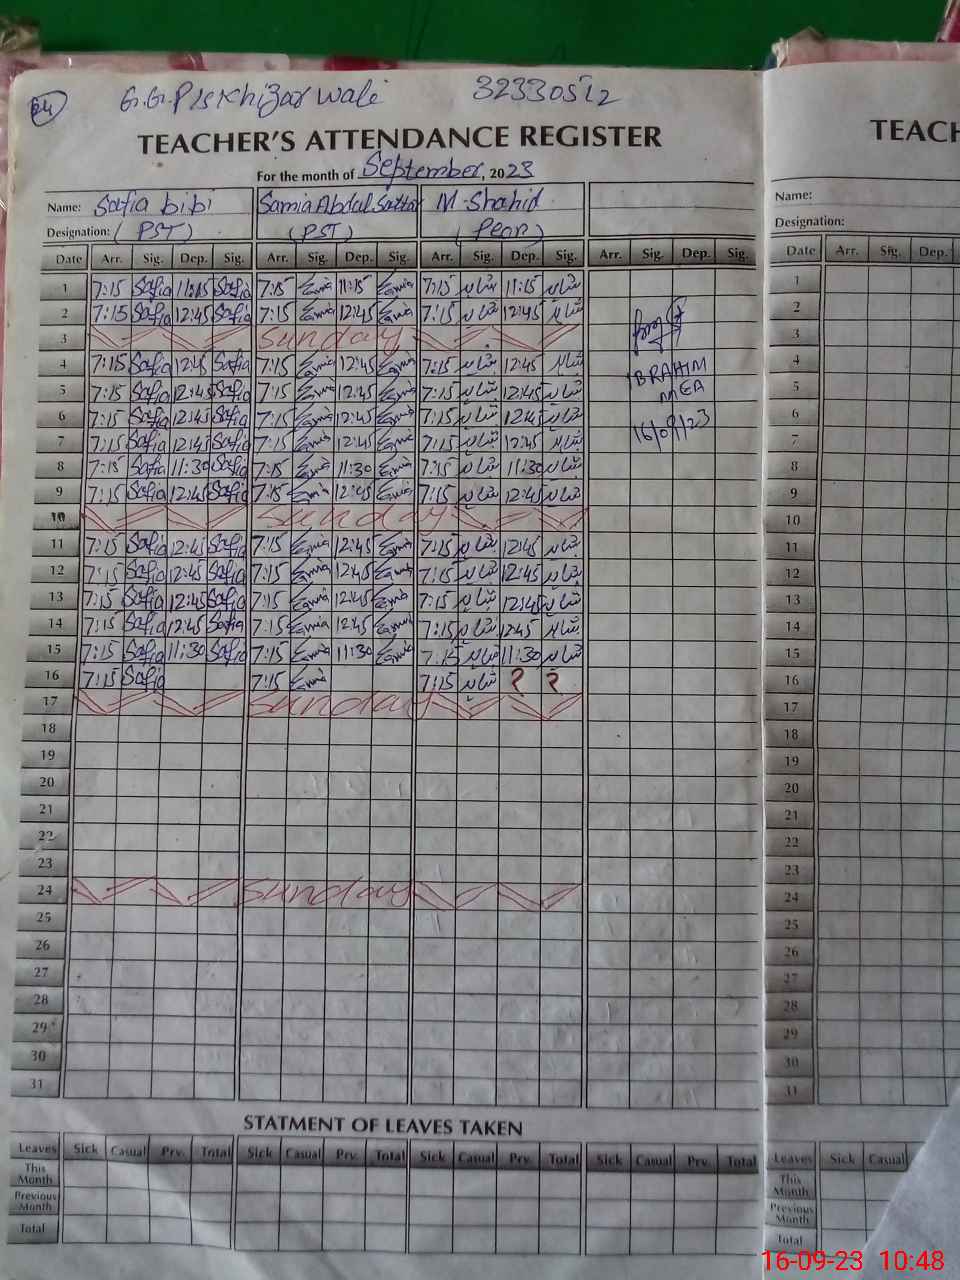 24 G.G.P/s Khizar wali 32330512
TEACHER'S ATTENDANCE REGISTER
For the month of September, 2023
Name: Safia bibi Samia Abdul Sattar M-Shahid
Designation: (PST) (PST) (Peon)
Date Arr. Sig. Dep. Sig. Arr. Sig. Dep. Sig. Arr. Sig. Dep. Sig. Arr. Sig. Dep. Sig.
1 7:15 Safia 11:15 Safia 7:15 Samia 11:15 Samia 7:15 شاہد 11:15 شاہد
2 7:15 Safia 12:45 Safia 7:15 Samia 12:45 Samia 7:15 شاہد 12:45 شاہد
3 Sunday
4 7:15 Safia 12:45 Safia 7:15 Samia 12:45 Samia 7:15 شاہد 12:45 شاہد IBRAHIM
5 7:15 Safia 12:45 Safia 7:15 Samia 12:45 Samia 7:15 شاہد 12:45 شاہد MEA
6 7:15 Safia 12:45 Safia 7:15 Samia 12:45 Samia 7:15 شاہد 12:45 شاہد 16/09/23
7 7:15 Safia 12:45 Safia 7:15 Samia 12:45 Samia 7:15 شاہد 12:45 شاہد
8 7:15 Safia 11:30 Safia 7:15 Samia 11:30 Samia 7:15 شاہد 11:30 شاہد
9 7:15 Safia 12:45 Safia 7:15 Samia 12:45 Samia 7:15 شاہد 12:45 شاہد
10 Sunday
11 7:15 Safia 12:45 Safia 7:15 Samia 12:45 Samia 7:15 شاہد 12:45 شاہد
12 7:15 Safia 12:45 Safia 7:15 Samia 12:45 Samia 7:15 شاہد 12:45 شاہد
13 7:15 Safia 12:45 Safia 7:15 Samia 12:45 Samia 7:15 شاہد 12:45 شاہد
14 7:15 Safia 12:45 Safia 7:15 Samia 12:45 Samia 7:15 شاہد 12:45 شاہد
15 7:15 Safia 11:30 Safia 7:15 Samia 11:30 Samia 7:15 شاہد 11:30 شاہد
16 7:15 Safia 7:15 Samia 7:15 شاہد ? ?
17 Sunday
18
19
20
21
22
23
24 Sunday
25
26
27
28
29
30
31
STATMENT OF LEAVES TAKEN
Leaves Sick Casual Prv. Total Sick Casual Prv. Total Sick Casual Prv. Total Sick Casual Prv. Total
This Month
Previous Month
Total
TEACH
Name:
Designation:
Date Arr. Sig. Dep.
1
2
3
4
5
6
7
8
9
10
11
12
13
14
15
16
17
18
19
20
21
22
23
24
25
26
27
28
29
30
31
Leaves Sick Casual
This Month
Previous Month
Total
16-09-23 10:48